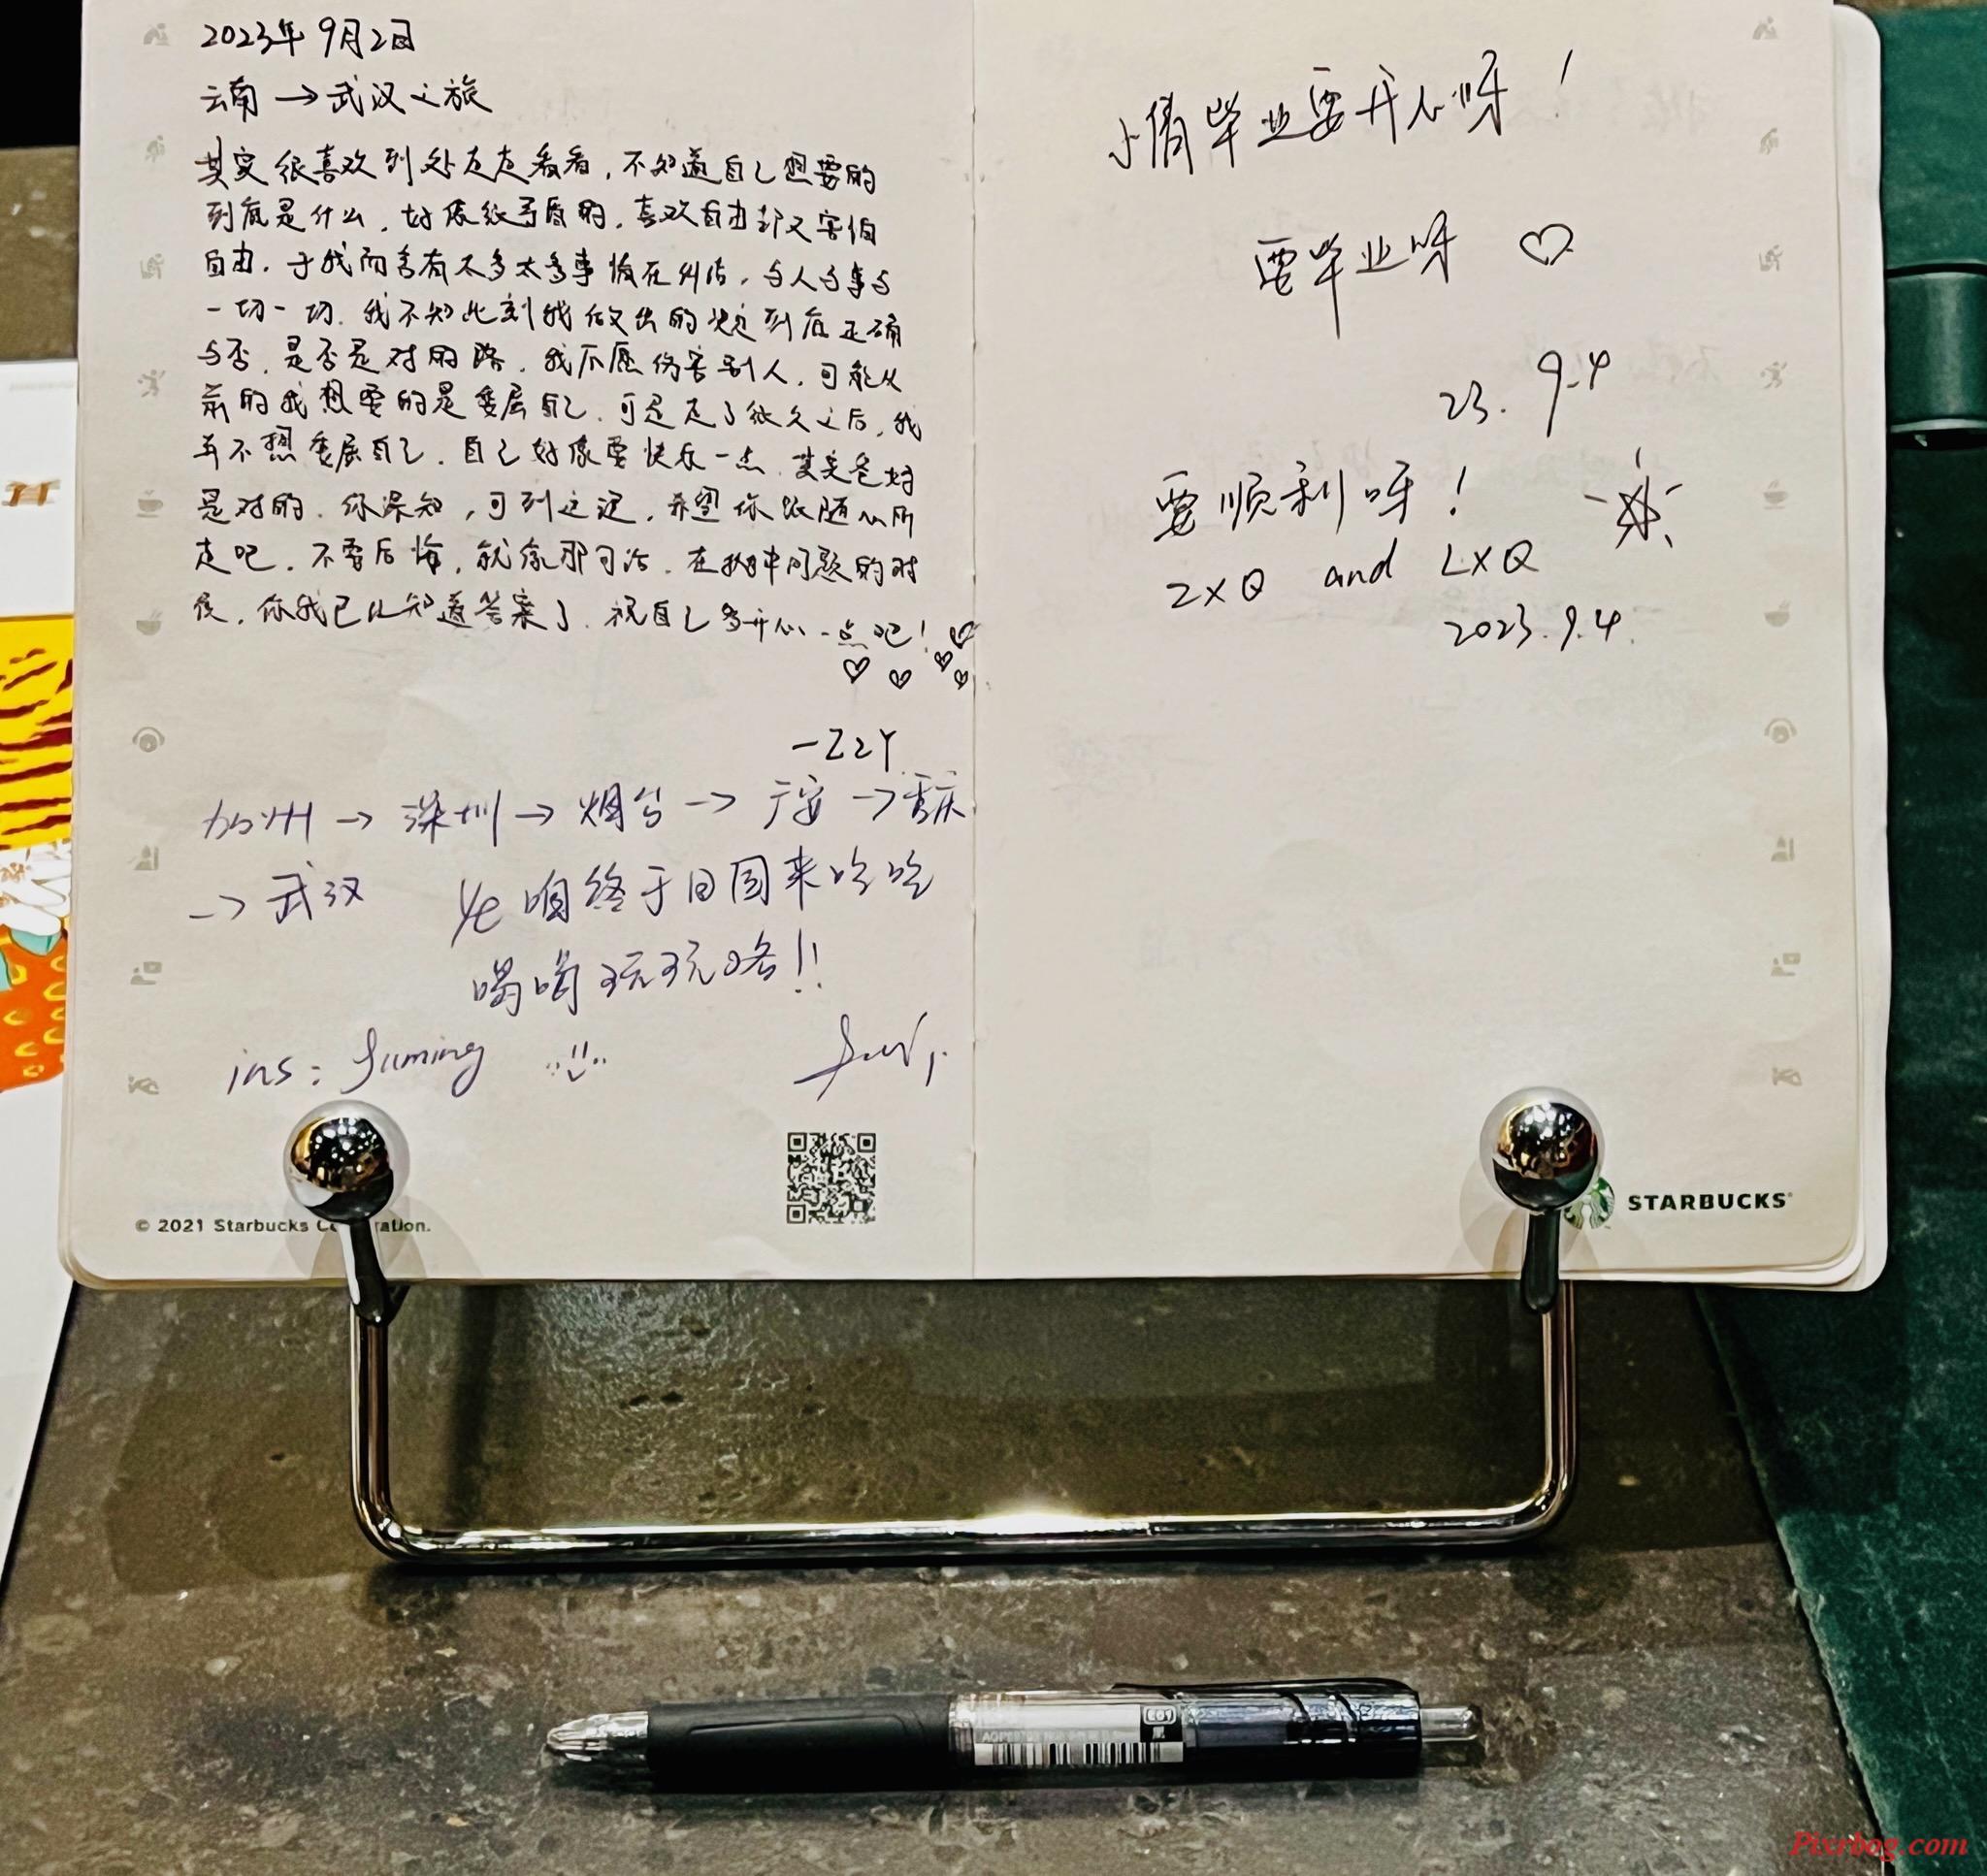 2023年9月2日
云南→武汉之旅
其实很喜欢到处走走看看,不知道自己想要的
到底是什么,好像给予盾的,喜欢自由却又害怕
自由,于我而言有太多太多事情在纠结,与人与事与
一切一切,我不知此刻我做出的决定到底正确
与否,是否是对的路,我不愿伤害别人,可能从
前的我想要的是委屈自己,可是走了很久之后,我
并不想委屈自己,自己好像要快乐一点,其实爸妈
是对的,你深知,可到这这,希望你跟随心所
走吧,不要后悔,就像那句话,在抛中问题的时
候,你我已经知道答案了,祝自己多开心一点吧!
-ZZY
加州→深圳→烟台→广安→重庆
→武汉 Ye 咱终于回国来吃吃
喝喝玩玩咯!!
ins: Juming
小倩毕业要开心呀!
要毕业呀 ♡
23. 9.4
要顺利呀!
ZXQ and LXQ
2023.9.4.
© 2021 Starbucks Co ration.
STARBUCKS
Pixrbog.com